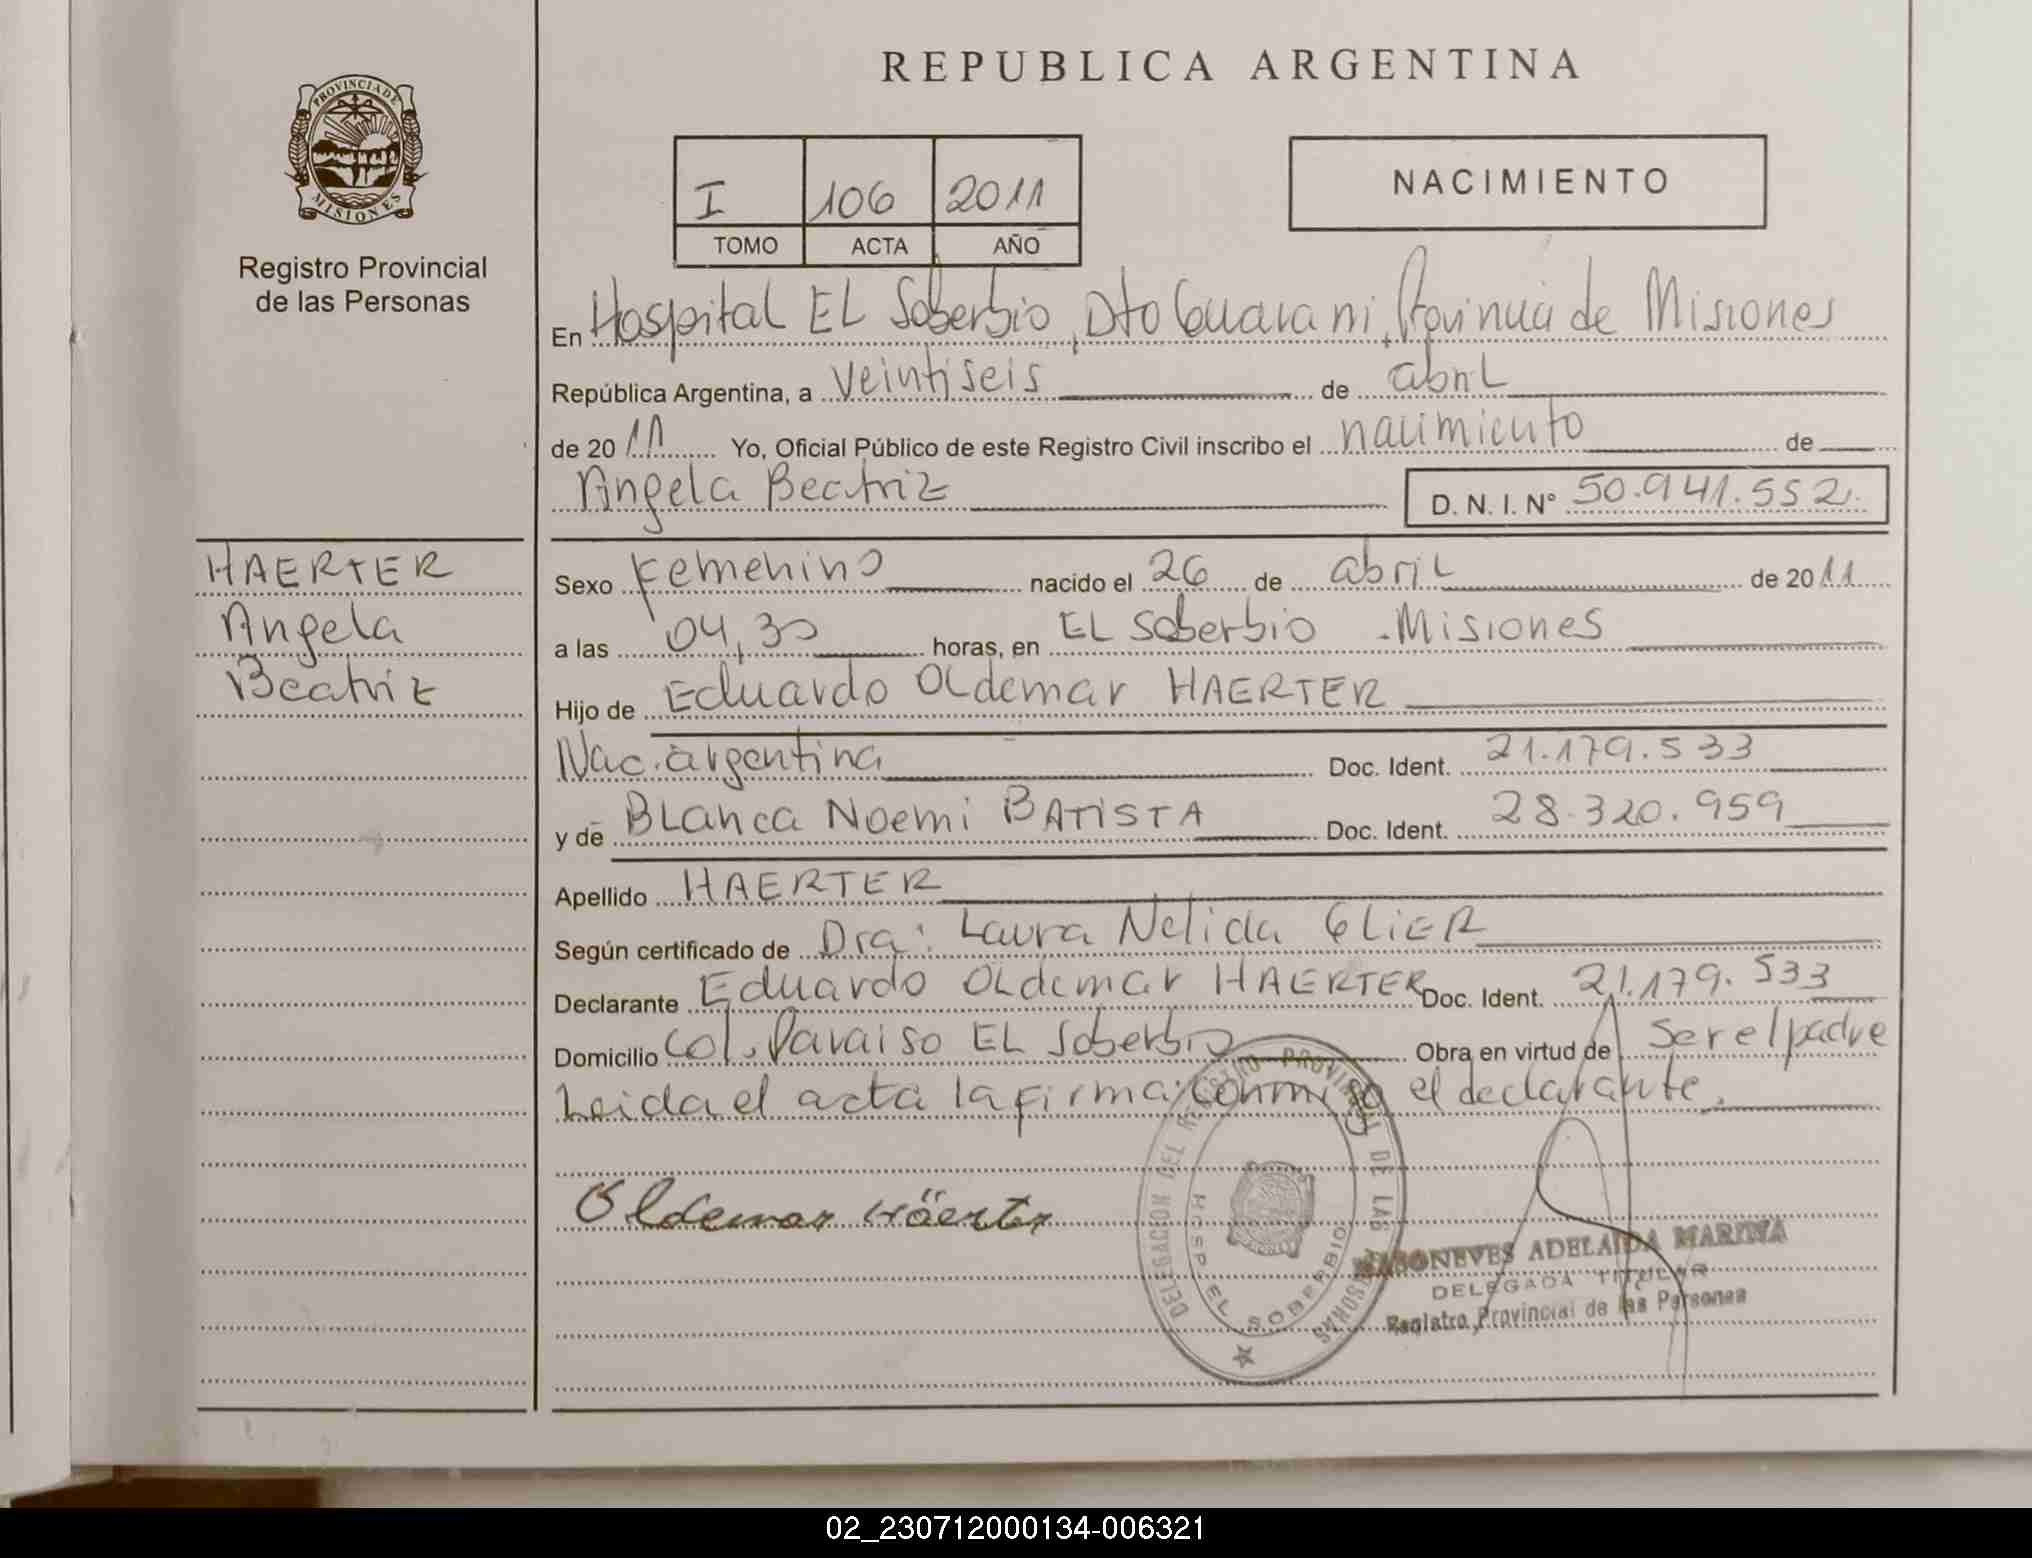 REPUBLICA ARGENTINA
PROVINCIA DE MISIONES
Registro Provincial
de las Personas
I 106 2011
TOMO ACTA AÑO
NACIMIENTO
En Hospital EL Soberbio, Dto Guarani, Provincia de Misiones
República Argentina, a veintiseis de abril
de 2011 Yo, Oficial Público de este Registro Civil inscribo el nacimiento de
Angela Beatriz D. N. I. N° 50.941.552.
HAERTER
Angela
Beatriz
Sexo Femenino nacido el 26 de abril de 2011
a las 04,30 horas, en EL Soberbio - Misiones
Hijo de Eduardo Oldemar HAERTER
Nac. argentina Doc. Ident. 21.179.533
y de Blanca Noemi BATISTA Doc. Ident. 28.320.959
Apellido HAERTER
Según certificado de Dra: Laura Nelida GLIER
Declarante Eduardo Oldemar HAERTER Doc. Ident. 21.179.533
Domicilio Col. Paraiso EL Soberbio Obra en virtud de ser el padre
Leida el acta la firma conmigo el declarante.
Oldemar Häerter
DELEGACION DEL REGISTRO PROVINCIAL DE LAS PERSONAS
HOSP EL SOBERBIO
ADELAIDA MARINA
DELEGADA TITULAR
Registro Provincial de las Personas
02_230712000134-006321